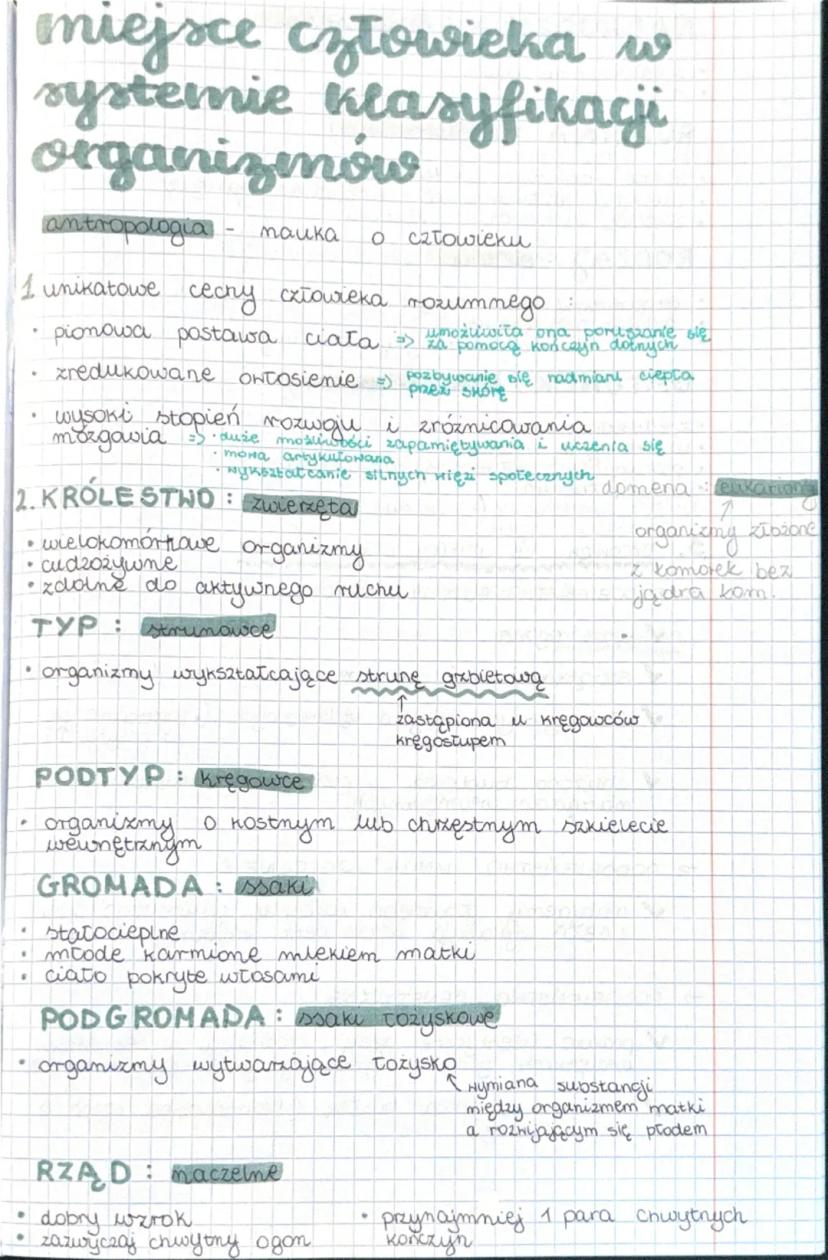 miejsce człowieka w
systemie klasyfikacji
organizmów
antropologia - nauka o człowieku
1 unikatowe cechy człowieka rozumnego :
• pionowa postawa ciała => umożliwiła ona poruszanie się
za pomocą kończyn dolnych
• zredukowane owłosienie => pozbywanie się nadmiaru ciepła
przez skórę
• wysoki stopień rozwoju i zróżnicowania
mózgowia => • duże możliwości zapamiętywania i uczenia się
• mowa artykułowana
• wykształcanie silnych więzi społecznych
domena : eukarionty
organizmy złożone
z komórek bez
jądra kom.
2. KRÓLESTWO : zwierzęta
• wielokomórkowe organizmy
• cudzożywne
• zdolne do aktywnego ruchu
TYP : strunowce
• organizmy wykształcające strunę grzbietową
↑
zastąpiona u kręgowców
kręgosłupem
PODTYP : kręgowce
• organizmy o kostnym lub chrzęstnym szkielecie
wewnętrznym
GROMADA : ssaki
• stałocieplne
• młode karmione mlekiem matki
• ciało pokryte włosami
PODGROMADA : ssaki łożyskowe
• organizmy wytwarzające łożysko
wymiana substancji
między organizmem matki
a rozwijającym się płodem
RZĄD : naczelne
• dobry wzrok
• zazwyczaj chwytny ogon
• przynajmniej 1 para chwytnych
kończyn